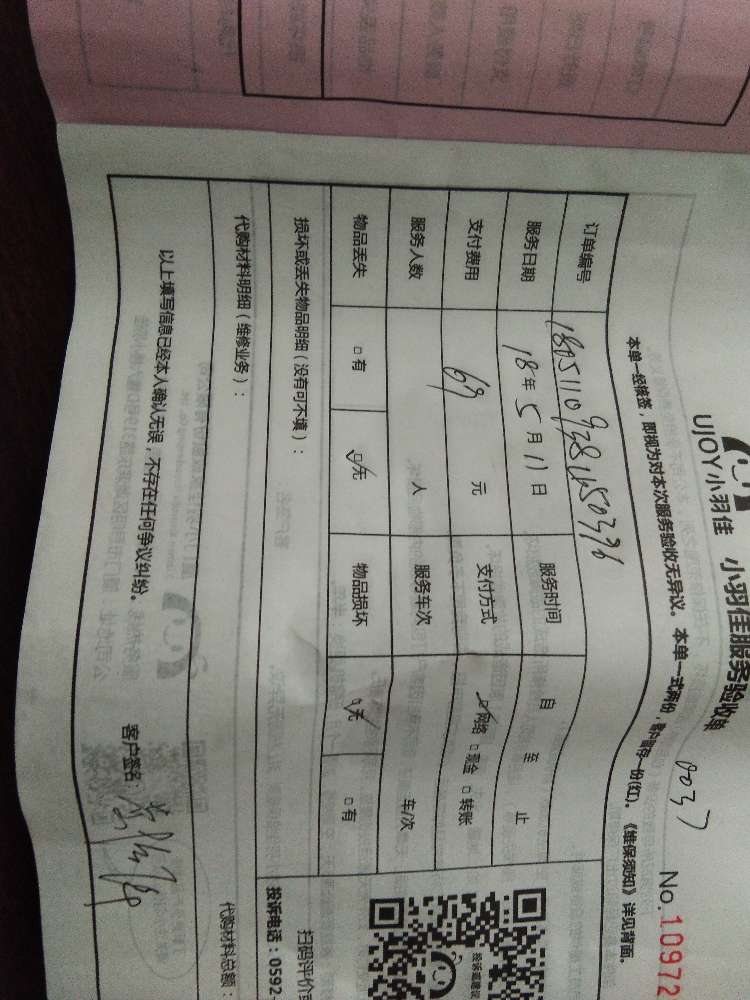 UJOY小羽佳 小羽佳服务验收单 0037 No.10972
本单一经核签，即视为对本次服务验收无异议。本单一式两份，客户留存一份(红)。《维保须知》详见背面。
订单编号
服务日期 18年5月11日 服务时间 自 至 止
支付费用 69 元 支付方式 ☑网络 □现金 □转账
服务人数 人 服务车次 车/次
物品丢失 □有 ☑无 物品损坏 ☑无 □有
损坏或丢失物品明细（没有可不填）：
扫码评价
投诉电话：0592
代购材料明细（维修业务）： 代购材料总额：
以上填写信息已经本人确认无误，不存在任何争议纠纷。 客户签名：